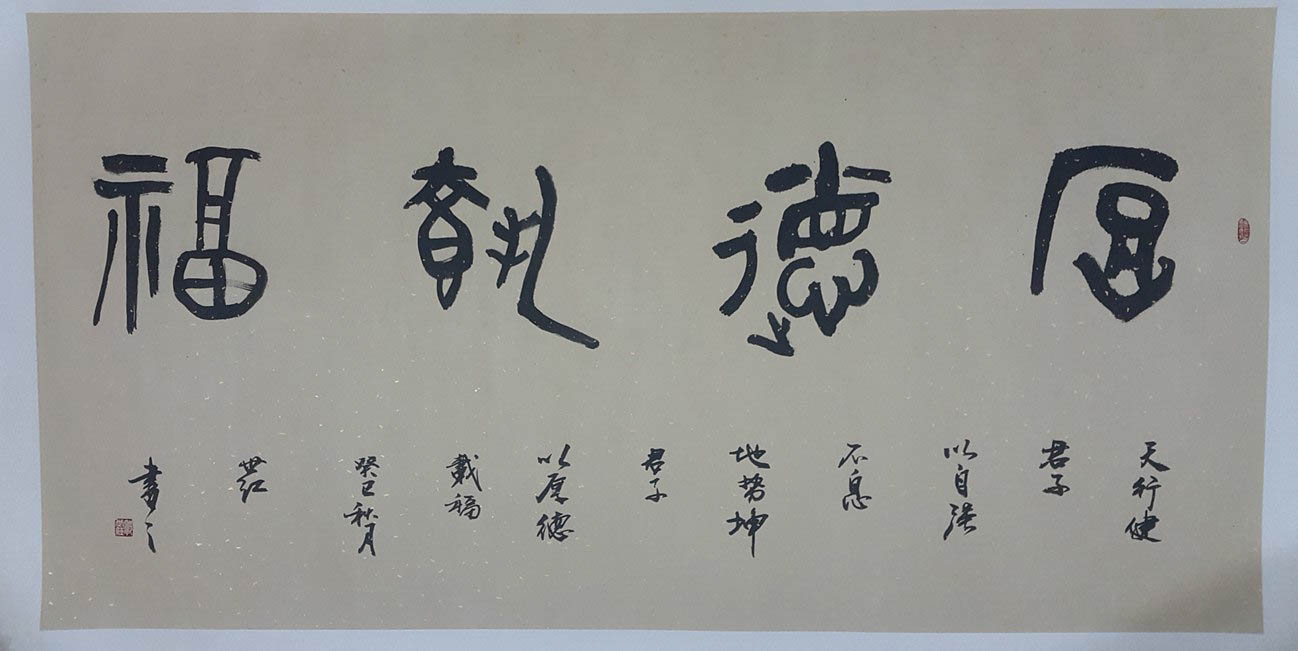 厚德載福
天行健
君子
以自强
不息
地势坤
君子
以厚德
載福
癸巳秋月
書之